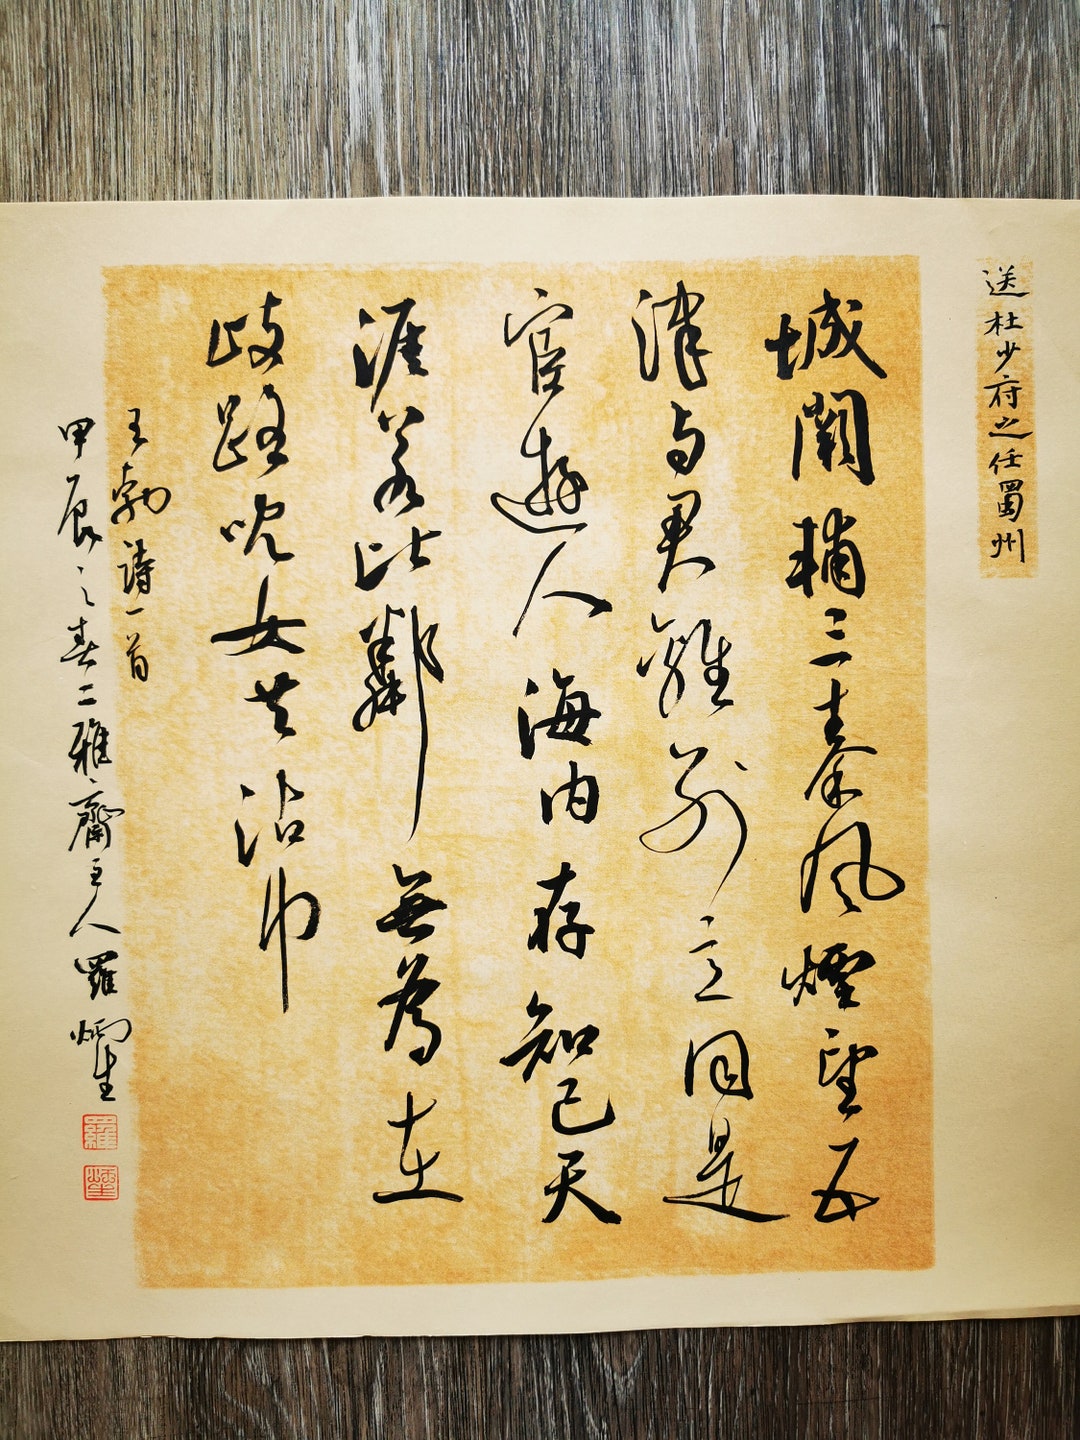 送杜少府之任蜀州
城闕輔三秦風煙望五
津与君離別意同是
宦遊人海内存知己天
涯若比鄰無為在
歧路兒女共沾巾
王勃詩一首
甲辰之春二雅齋主人羅炳生
羅
炳生